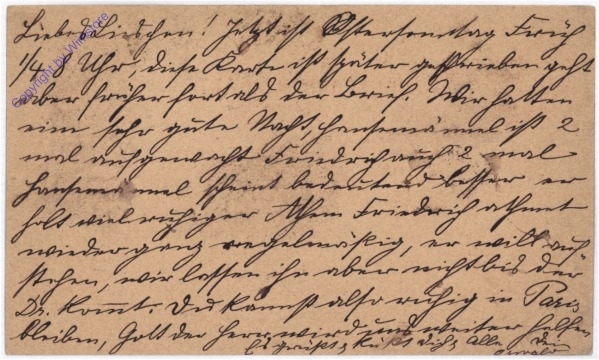 Liebes Lieschen! Jetzt ist Ostersonntag Früh
1/4 8 Uhr, diese Karte ist später geschrieben geht
aber früher fort als der Brief. Wir hatten
eine sehr gute Nacht, Hansemännel ist 2
mal aufgewacht Friedrich auch 2 mal
Hansemännel scheint bedeutend besser er
holt viel ruhiger Athem Friedrich athmet
wieder ganz regelmäßig, er will auf
stehen, wir lassen ihn aber nicht bis der
Dr. kommt. Du kannst also ruhig in Paris
bleiben, Gott der Herr wird uns weiter helfen
Es grüßt & küßt Dich & Alle Dein
Copyright by Whitelore